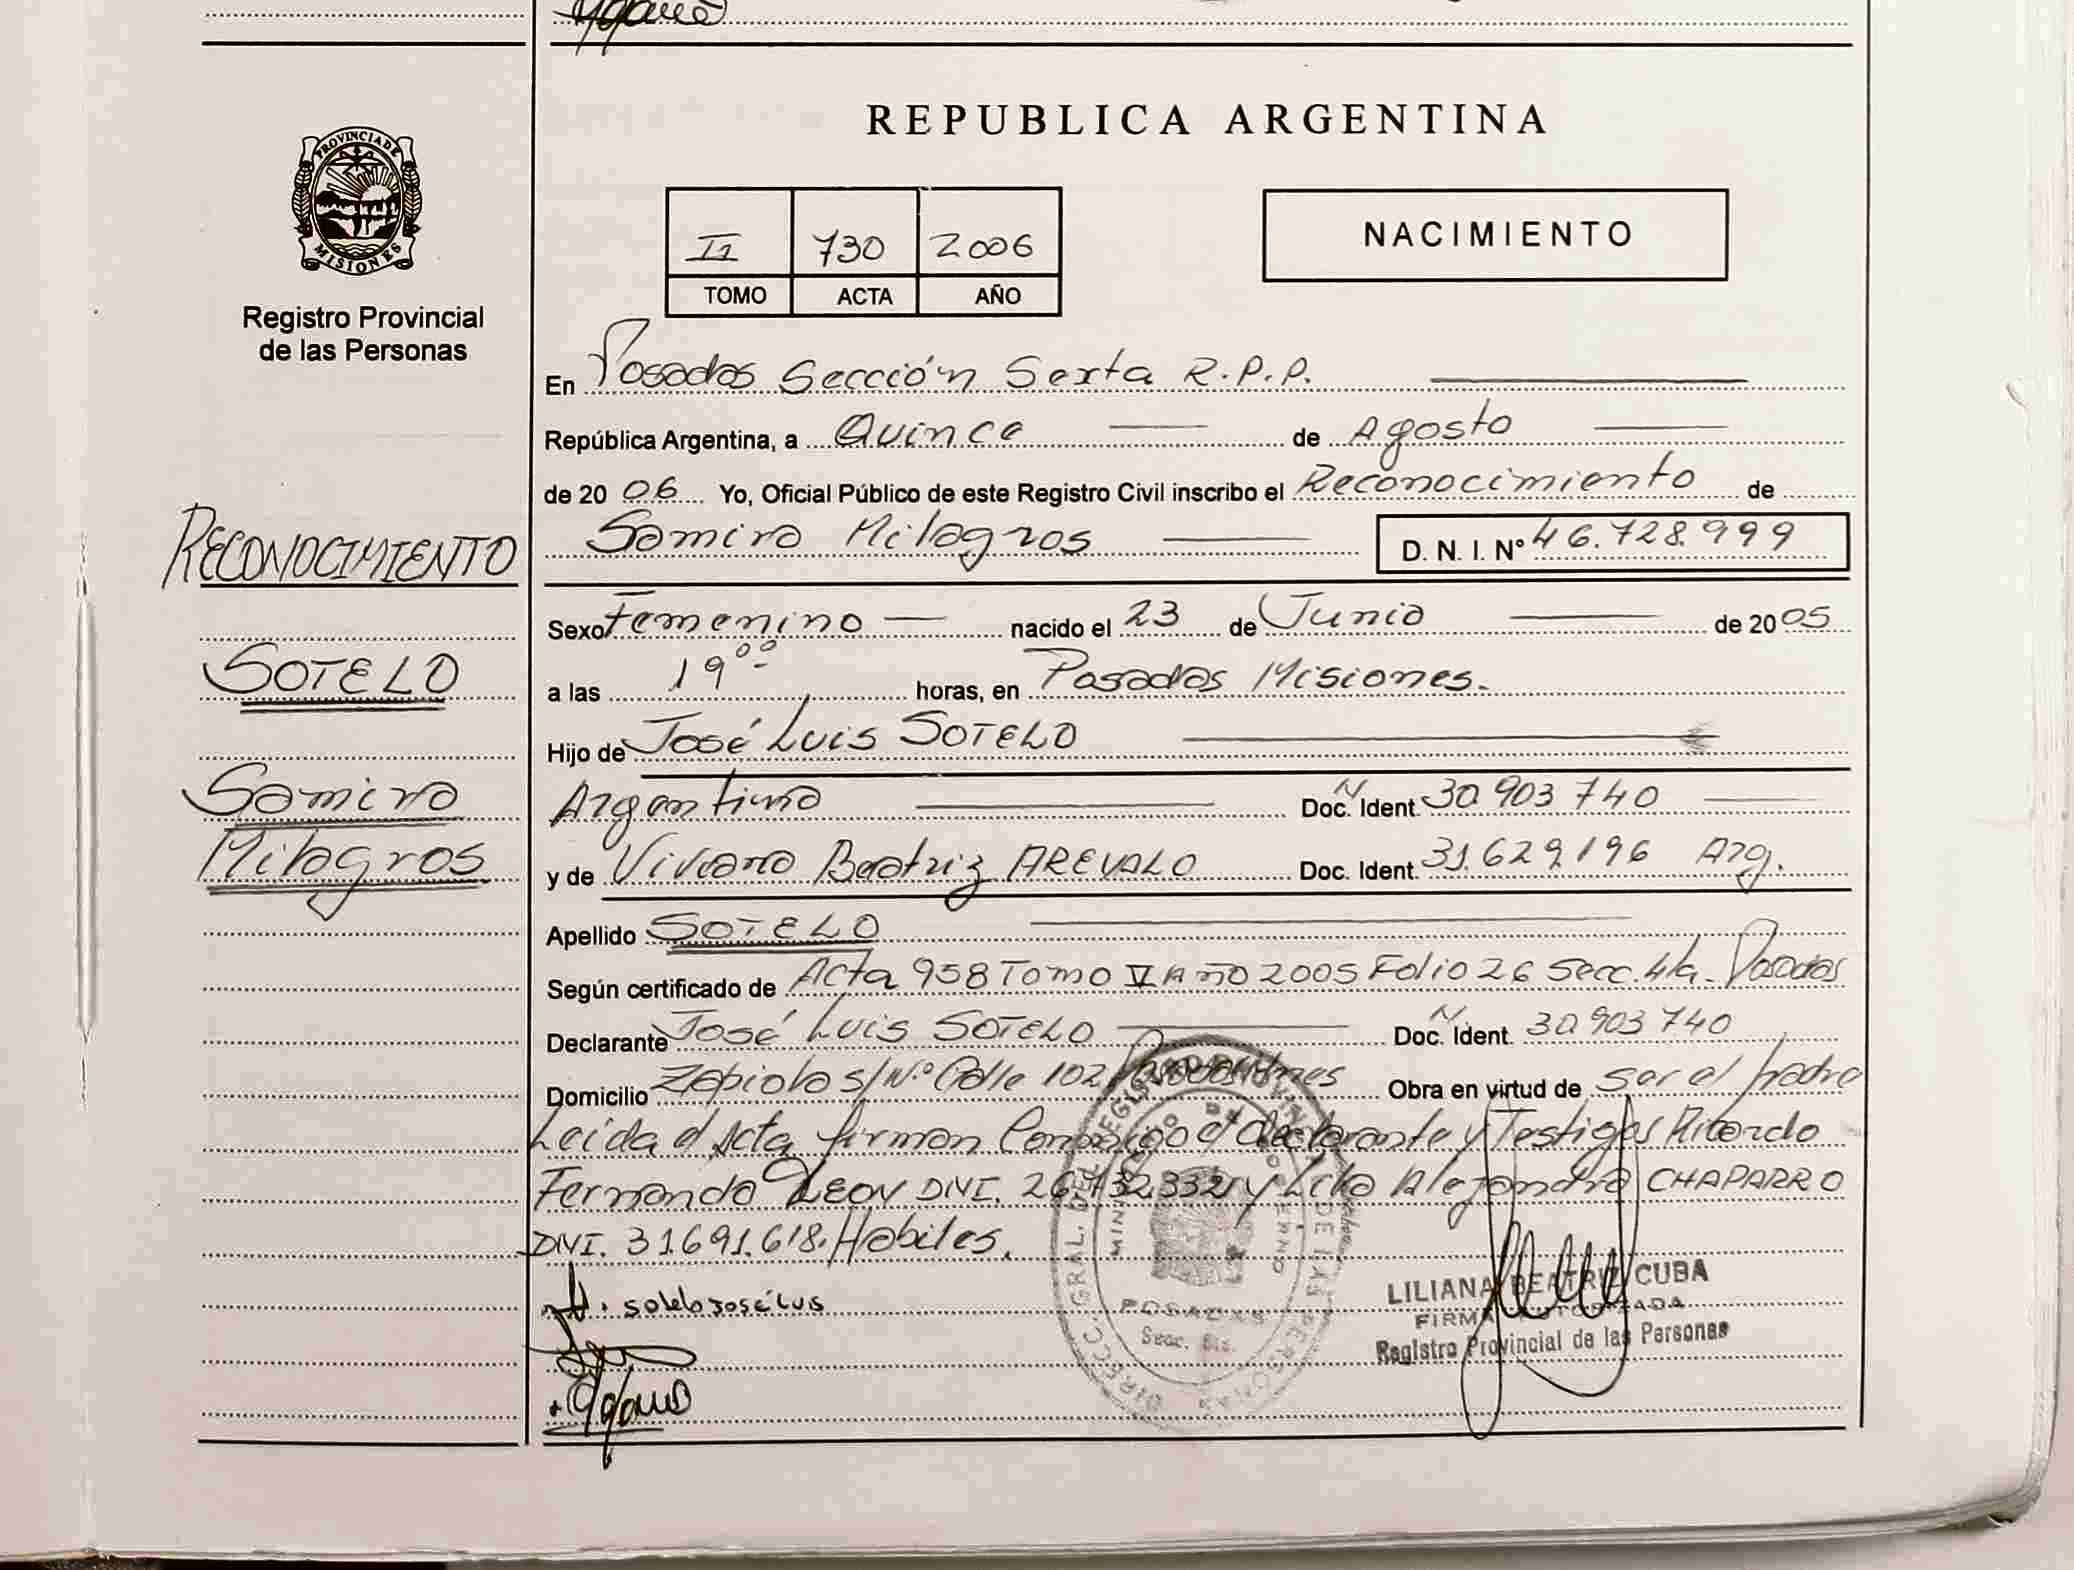 PROVINCIA DE
MISIONES
Registro Provincial
de las Personas
RECONOCIMIENTO
SOTELO
Samira
Milagros
REPUBLICA ARGENTINA
II 730 2006
TOMO ACTA AÑO
NACIMIENTO
En Posadas Sección Sexta R.P.P.
República Argentina, a Quince de Agosto
de 2006 Yo, Oficial Público de este Registro Civil inscribo el Reconocimiento de
Samira Milagros D. N. I. Nº 46.728.999
Sexo Femenino nacido el 23 de Junio de 2005
a las 19⁰⁰ horas, en Posadas Misiones.
Hijo de José Luis SOTELO
Argentino Doc. N Ident. 30.903.740
y de Viviana Beatriz AREVALO Doc. Ident. 31.629.196 Arg.
Apellido SOTELO
Según certificado de Acta 958 Tomo V Año 2005 Folio 26 Secc. 4ta. Posadas
Declarante José Luis SOTELO Doc. N Ident. 30.903.740
Domicilio Zapiola s/Nº Calle 102 Posadas Mnes Obra en virtud de ser el padre
Leida el Acta firman Conmigo el declarante y Testigos Ricardo
Fernando LEON DNI. 26.132.332 y Lito Alejandro CHAPARRO
DNI. 31.691.618. Hábiles.
Sotelo José Luis
DIRECC. GRAL. DEL REGISTRO PROVINCIAL DE LAS PERSONAS
MINISTERIO DE GOBIERNO
POSADAS
Secc. 6ta.
LILIANA BEATRIZ CUBA
FIRMA AUTORIZADA
Registro Provincial de las Personas